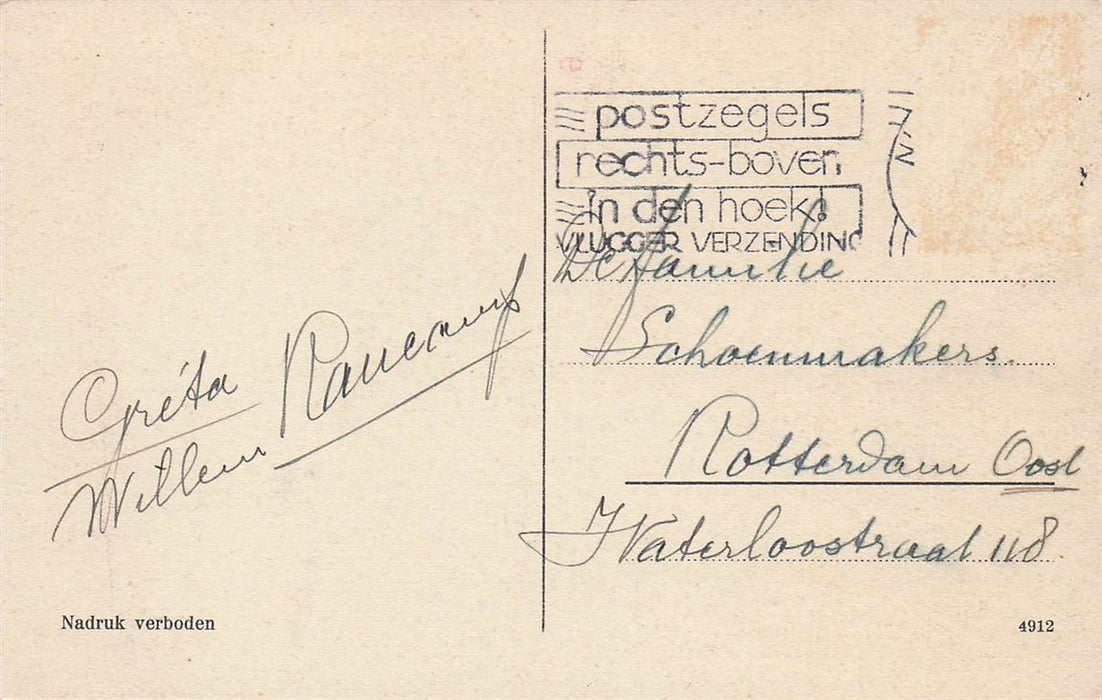 postzegels
rechts-boven
in den hoek!
VLUGGER VERZENDING
De familie
Schoenmakers.
Rotterdam Oost
Waterloostraat 118.
Gréta
Willem
Nadruk verboden
4912